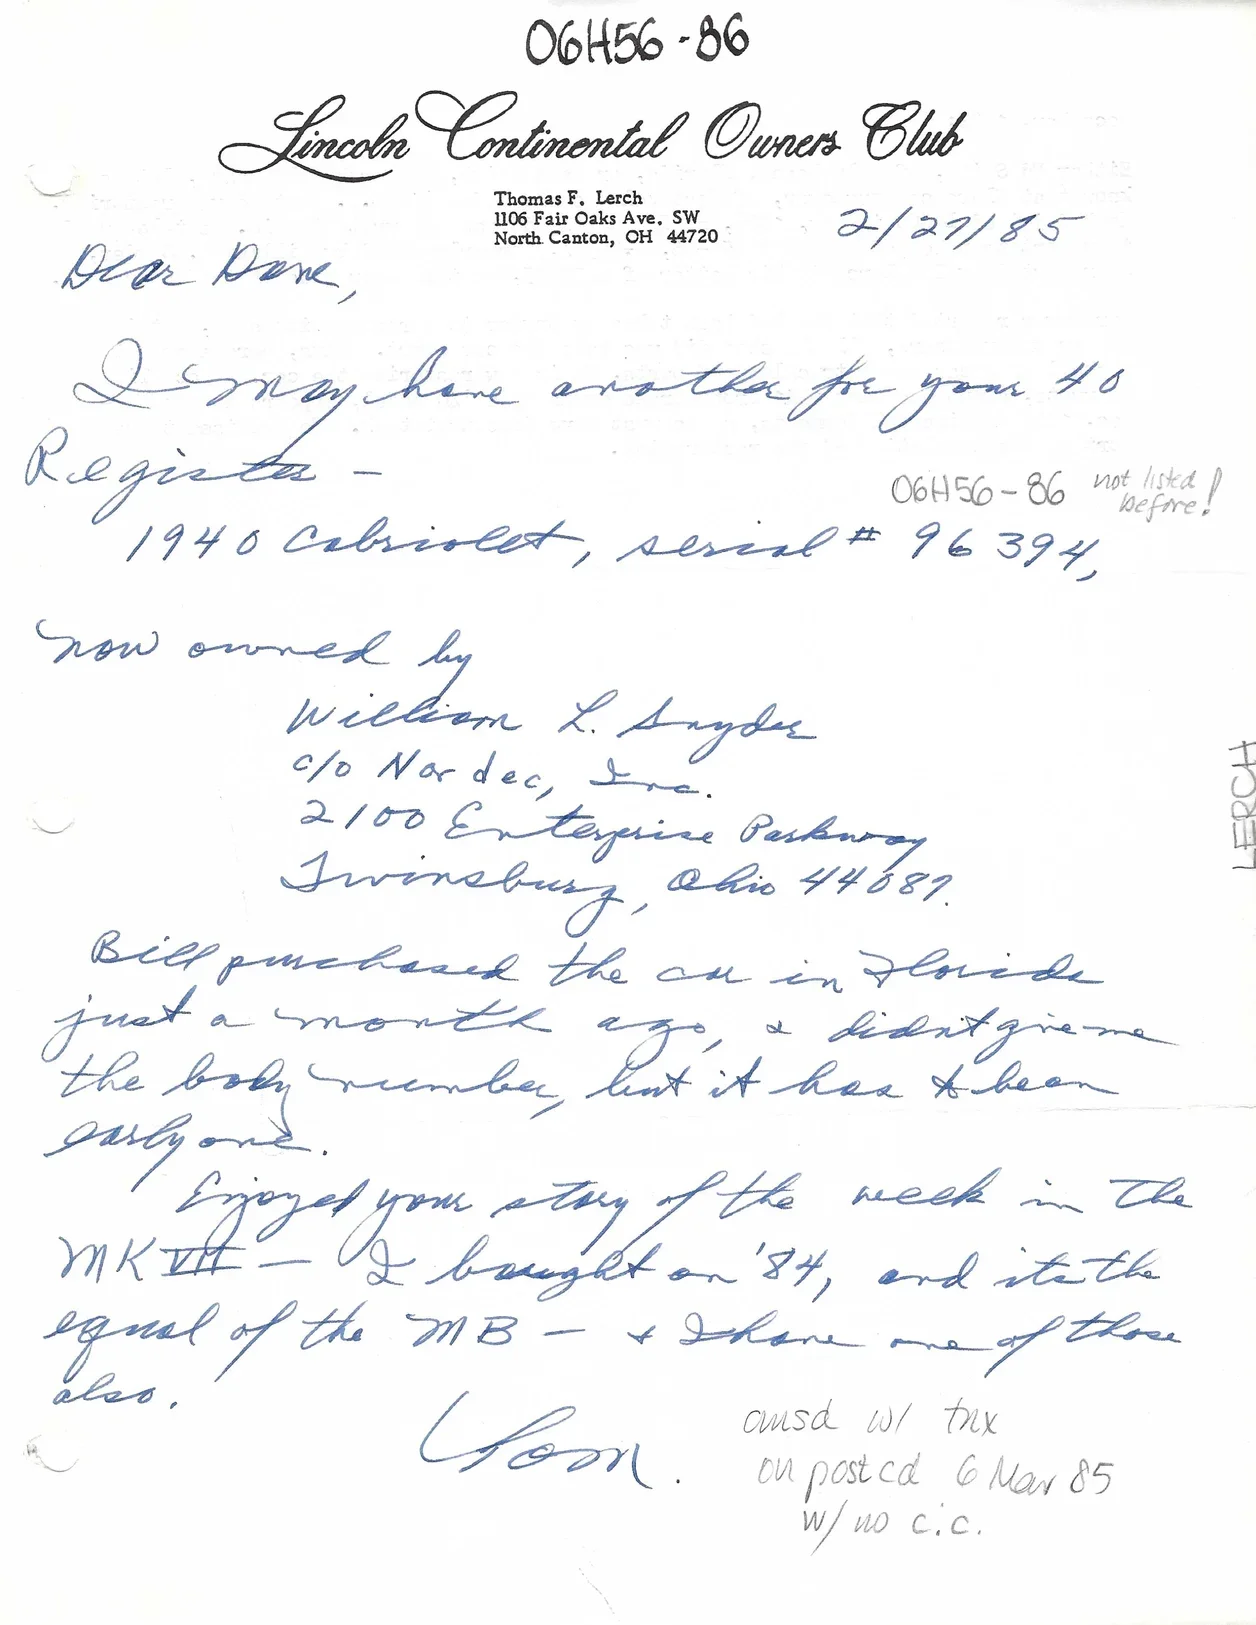 06H56-86
Lincoln Continental Owners Club
Thomas F. Lerch
1106 Fair Oaks Ave. SW
North Canton, OH 44720
2/27/85
Dear Dave,
I may have another for your 40
Register -
06H56-86 not listed
before!
1940 Cabriolet, serial # 96394,
now owned by
William L. Snyder
c/o Nordec, Inc.
2100 Enterprise Parkway
Twinsburg, Ohio 44087.
LERCH
Bill purchased the car in Florida
just a month ago, & didn't give me
the body number, but it has to be an
early one.
Enjoyed your story of the week in the
MK VII - I bought an '84, and its the
equal of the MB - & I have one of those
also.
Tom.
answd w/ tnx
on postcd 6 Mar 85
w/ no c.c.